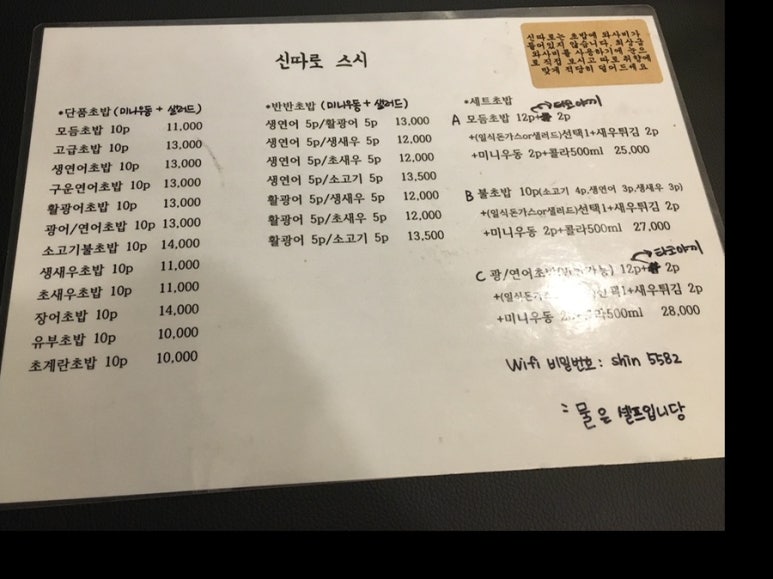 신따로 스시
신따로는 초밥에 와사비가
들어있지 않습니다. 최상급
와사비를 사용하기에 눈으
로 직접 보시고 따로 취향에
맞게 적당히 덜어드세요
*단품초밥 (미니우동 + 샐러드)
모듬초밥 10p 11,000
고급초밥 10p 13,000
생연어초밥 10p 13,000
구운연어초밥 10p 13,000
활광어초밥 10p 13,000
광어/연어초밥 10p 13,000
소고기불초밥 10p 14,000
생새우초밥 10p 11,000
초새우초밥 10p 11,000
장어초밥 10p 14,000
유부초밥 10p 10,000
초계란초밥 10p 10,000
*반반초밥 (미니우동 + 샐러드)
생연어 5p/활광어 5p 13,000
생연어 5p/생새우 5p 12,000
생연어 5p/초새우 5p 12,000
생연어 5p/소고기 5p 13,500
활광어 5p/생새우 5p 12,000
활광어 5p/초새우 5p 12,000
활광어 5p/소고기 5p 13,500
*세트초밥
타코야끼
A 모듬초밥 12p+ 2p
+(일식돈가스or샐러드)선택1+새우튀김 2p
+미니우동 2p+콜라500ml 25,000
B 불초밥 10p(소고기 4p,생연어 3p,생새우 3p)
+(일식돈가스or샐러드)선택1+새우튀김 2p
+미니우동 2p+콜라500ml 27,000
타코야끼
C 광/연어초밥 12p+ 2p
+(일식돈가스 선택1+새우튀김 2p
+미니우동 500ml 28,000
Wifi 비밀번호: shin 5582
물은 셀프입니당